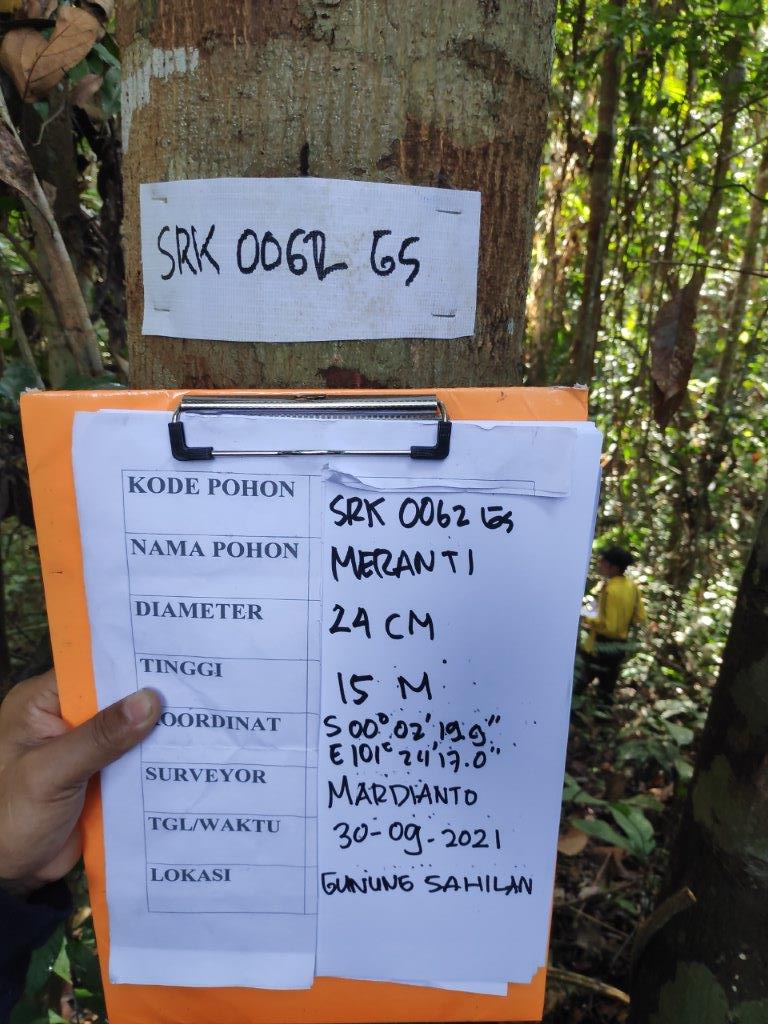 SRK 0062 GS
KODE POHON SRK 0062 GS
NAMA POHON MERANTI
DIAMETER 24 CM
TINGGI 15 M
KOORDINAT S 00° 02' 19.9"
E 101° 24' 17.0"
SURVEYOR MARDIANTO
TGL/WAKTU 30-09-2021
LOKASI GUNUNG SAHILAN